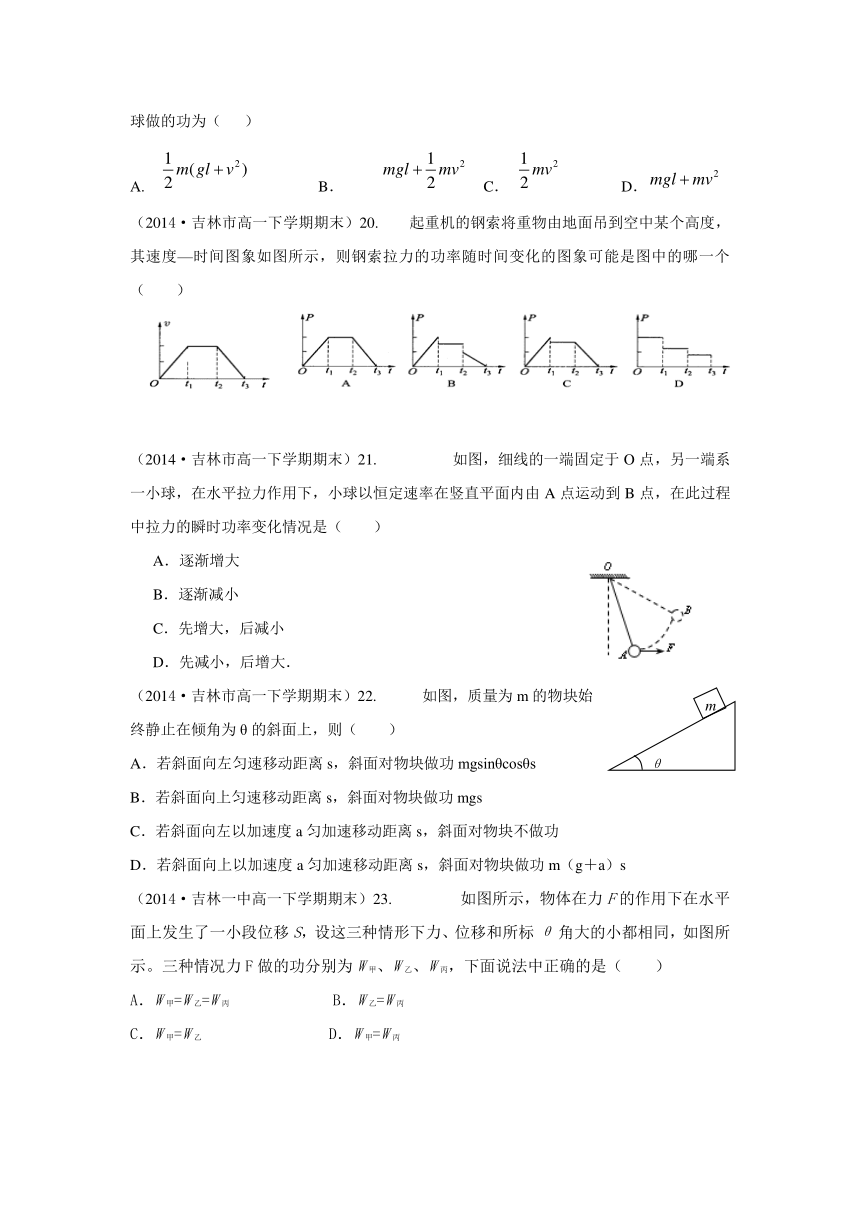 球做的功为（ ）
A. 1/2 m(gl+v²) B. mgl+1/2 mv² C. 1/2 mv² D. mgl+mv²
（2014·吉林市高一下学期期末）20. 起重机的钢索将重物由地面吊到空中某个高度，
其速度—时间图象如图所示，则钢索拉力的功率随时间变化的图象可能是图中的哪一个
（ ）
v O t₁ t₂ t₃ t
P O t₁ t₂ t₃ T A
P O t₁ t₂ t₃ T B
P O t₁ t₂ t₃ T C
P O t₁ t₂ t₃ T D
（2014·吉林市高一下学期期末）21. 如图，细线的一端固定于 O 点，另一端系
一小球，在水平拉力作用下，小球以恒定速率在竖直平面内由 A 点运动到 B 点，在此过程
中拉力的瞬时功率变化情况是（ ）
A．逐渐增大
B．逐渐减小
C．先增大，后减小
D．先减小，后增大．
O
B
A F
（2014·吉林市高一下学期期末）22. 如图，质量为 m 的物块始
终静止在倾角为 θ 的斜面上，则（ ）
m
θ
A．若斜面向左匀速移动距离 s，斜面对物块做功 mgsinθcosθs
B．若斜面向上匀速移动距离 s，斜面对物块做功 mgs
C．若斜面向左以加速度 a 匀加速移动距离 s，斜面对物块不做功
D．若斜面向上以加速度 a 匀加速移动距离 s，斜面对物块做功 m（g＋a）s
（2014·吉林一中高一下学期期末）23. 如图所示，物体在力 F 的作用下在水平
面上发生了一小段位移 S，设这三种情形下力、位移和所标 θ 角大的小都相同，如图所
示。三种情况力 F 做的功分别为 W甲、W乙、W丙，下面说法中正确的是（ ）
A．W甲=W乙=W丙 B．W乙=W丙
C．W甲=W乙 D．W甲=W丙